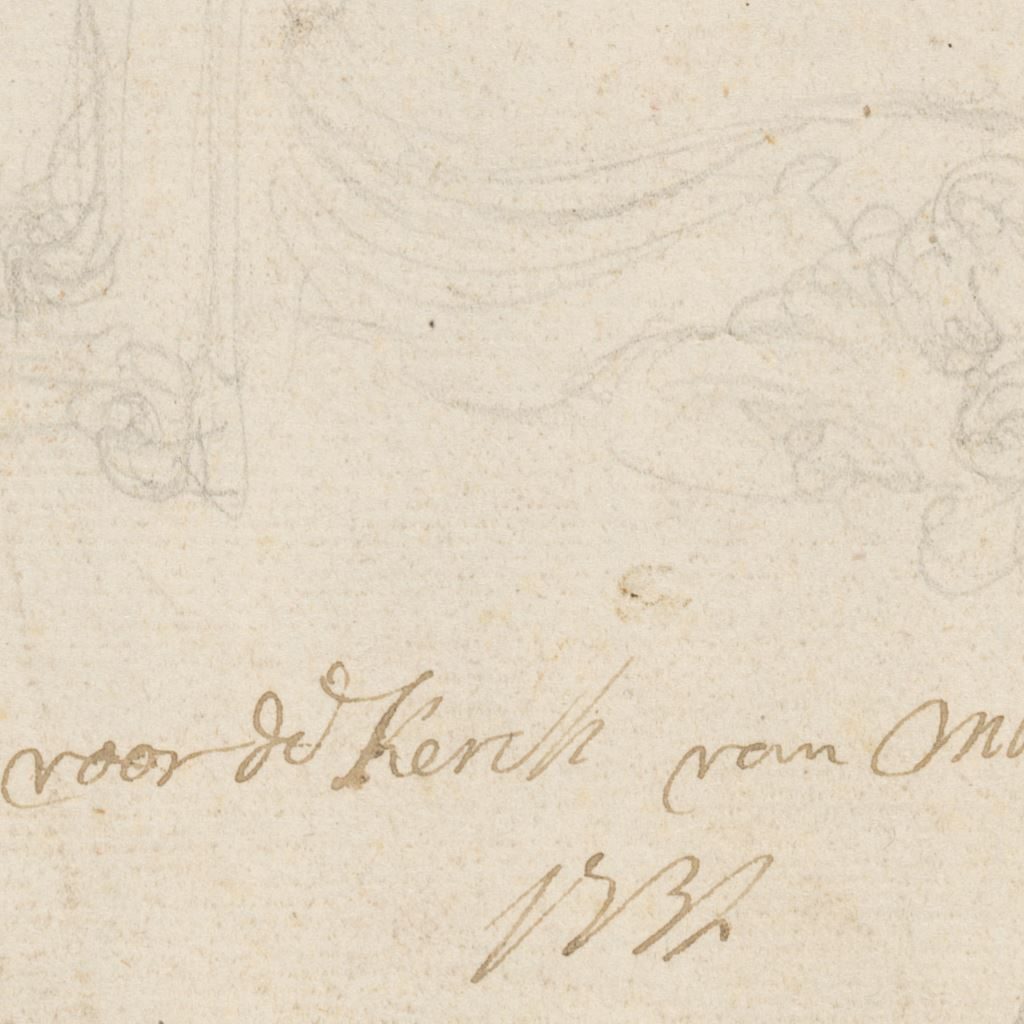 voor de Kerck van
1731